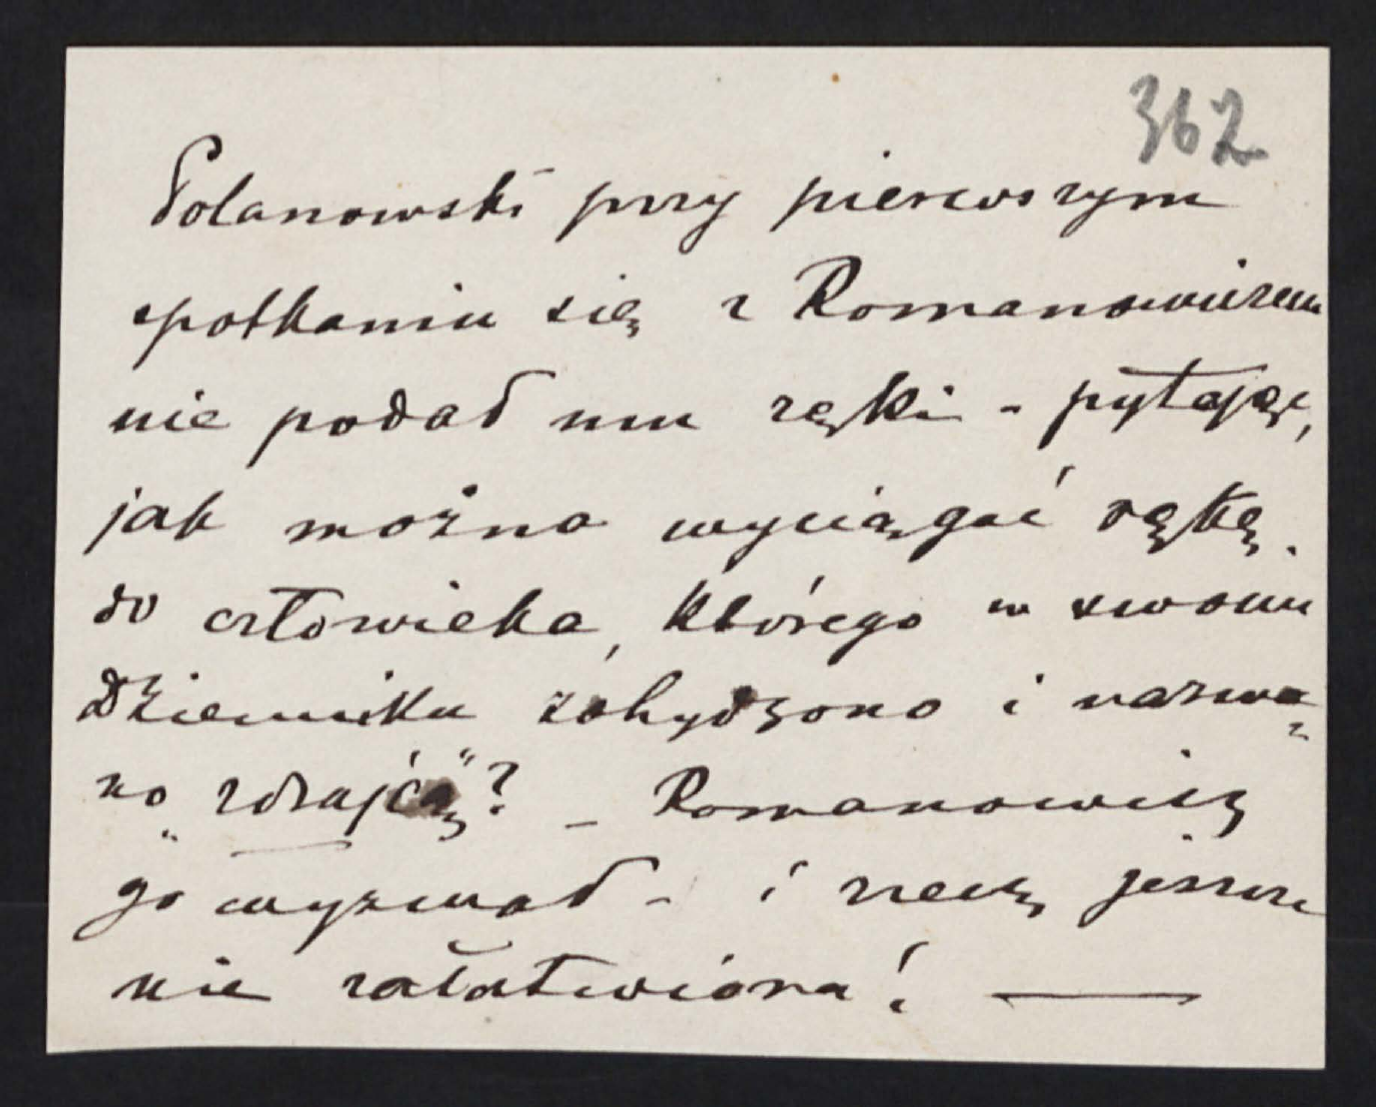 362
Polanowski przy pierwszym
spotkaniu się z Romanowiczem
nie podał mu ręki - pytając,
jak można wyciągać rękę
do człowieka, którego w swoim
Dzienniku zohydzono i nazwa-
no „zdrajcą"? - Romanowicz
go wyzwał - i rzecz jeszcze
nie załatwiona! —